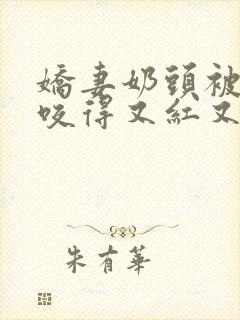 嬌妻奶頭被
咬得又紅又
朱有華